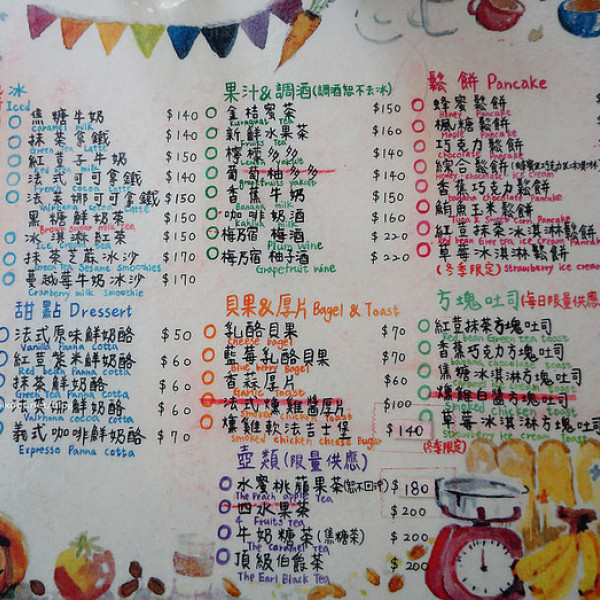 冰
Iced
焦糖牛奶 $140
caramel milk
抹茶拿鐵 $140
Green tea Latte
紅荳子牛奶 $150
法式可可拿鐵 $140
French cocoa Latte
法芙娜可可拿鐵 $150
Valrhona cocoa Latte
黑糖鮮奶茶 $150
Brown sugar milk Tea
冰淇淋紅茶 $150
Ice cream Tea
抹茶芝麻冰沙 $170
Green Tea Sesame smoothies
蔓越莓牛奶冰沙 $170
Cranberry milk smoothie
甜點 Dressert
法式原味鮮奶酪 $50
Vanilla Panna cotta
紅荳紫米鮮奶酪 $60
Red bean Panna cotta
抹茶鮮奶酪 $60
Green Tea Panna cotta
法芙娜鮮奶酪 $60
Valrhona cocoa Panna cotta
義式咖啡鮮奶酪 $70
Expresso Panna cotta
果汁&調酒(調酒恕不去冰)
金桔蜜茶 $150
Kumquat Tea
新鮮水果茶 $140
Fruits Tea
檸檬多多 $140
Lemon Yakult
葡萄柚多多 $140
Grapefruits yakult
香蕉牛奶 $150
Banana milk
咖啡奶酒 $160
Kahlua milk
梅乃宿 梅酒 $220
Plum wine
梅乃宿 柚子酒 $220
Grapefruit wine
貝果&厚片 Bagel & Toast
乳酪貝果 $70
cheese bagel
藍莓乳酪貝果 $70
Blue berry Bagel
香蒜厚片 $60
Garlic Toast
法式燻雞醬厚片 $100
Smoked chicken Toast
燻雞軟法吉士堡 $140
Smoked chicken cheese Bugar
壺類(限量供應)
水蜜桃蘋果茶(恕不回沖) $180
The Peach apple Tea
四水果茶 $200
4 Fruits Tea
牛奶糖茶(焦糖茶) $200
The caramel Tea
頂級伯爵茶 $200
The Earl Black Tea
鬆餅 Pancake
蜂蜜鬆餅
Honey Pancake
楓糖鬆餅
Maple Pancake
巧克力鬆餅
chocolate Pancake
Honey chocolate ice cream
香蕉巧克力鬆餅
Banana chocolate Pancake
鮪魚玉米鬆餅
Tuna & sweet corn Pancake
紅荳抹茶冰淇淋鬆餅
Red bean Gree tea ice cream Pancake
草莓冰淇淋鬆餅
(冬季限定) Strawberry ice cream
方塊吐司(每日限量供應)
紅荳抹茶方塊吐司
Red bean Green tea toast
香蕉巧克力方塊吐司
Banana chocolate toast
焦糖冰淇淋方塊吐司
Caramel ice cream toast
燻雞白醬方塊吐司
Smoked chicken toast
草莓冰淇淋方塊吐司
(冬季限定) Strawberry ice cream toast